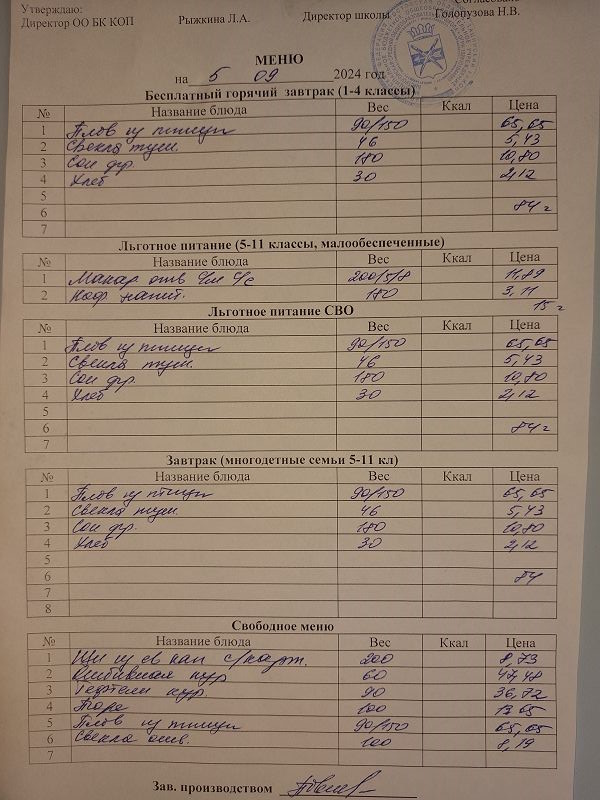 Утверждаю:
Директор ОО БК КОП Рыжкина Л.А. Директор школы Голопузова Н.В.
МЕНЮ
на 5 09 2024 год
Бесплатный горячий завтрак (1-4 классы)
№ Название блюда Вес Ккал Цена
1 Плов из птицы 90/150 65,65
2 Свекла туш. 46 5,43
3 Сок фр. 180 10,80
4 Хлеб 30 2,12
5
6 84 г
7
Льготное питание (5-11 классы, малообеспеченные)
№ Название блюда Вес Ккал Цена
1 Макар отв с/м с/с 200/5/8 11,89
2 Коф напит. 180 3,11
15 г
Льготное питание СВО
№ Название блюда Вес Ккал Цена
1 Плов из птицы 90/150 65,65
2 Свекла туш. 46 5,43
3 Сок фр. 180 10,80
4 Хлеб 30 2,12
5
6 84 г
7
Завтрак (многодетные семьи 5-11 кл)
№ Название блюда Вес Ккал Цена
1 Плов из птицы 90/150 65,65
2 Свекла туш. 46 5,43
3 Сок фр. 180 10,80
4 Хлеб 30 2,12
5
6 84
7
8
Свободное меню
№ Название блюда Вес Ккал Цена
1 Щи из св кап с/карт. 200 8,73
2 Отбивная кур 60 47,48
3 Тефтели кур. 90 36,72
4 Пюре 100 13 65
5 Плов из птицы 90/150 65,65
6 Свекла отв. 100 8,19
7
Зав. производством